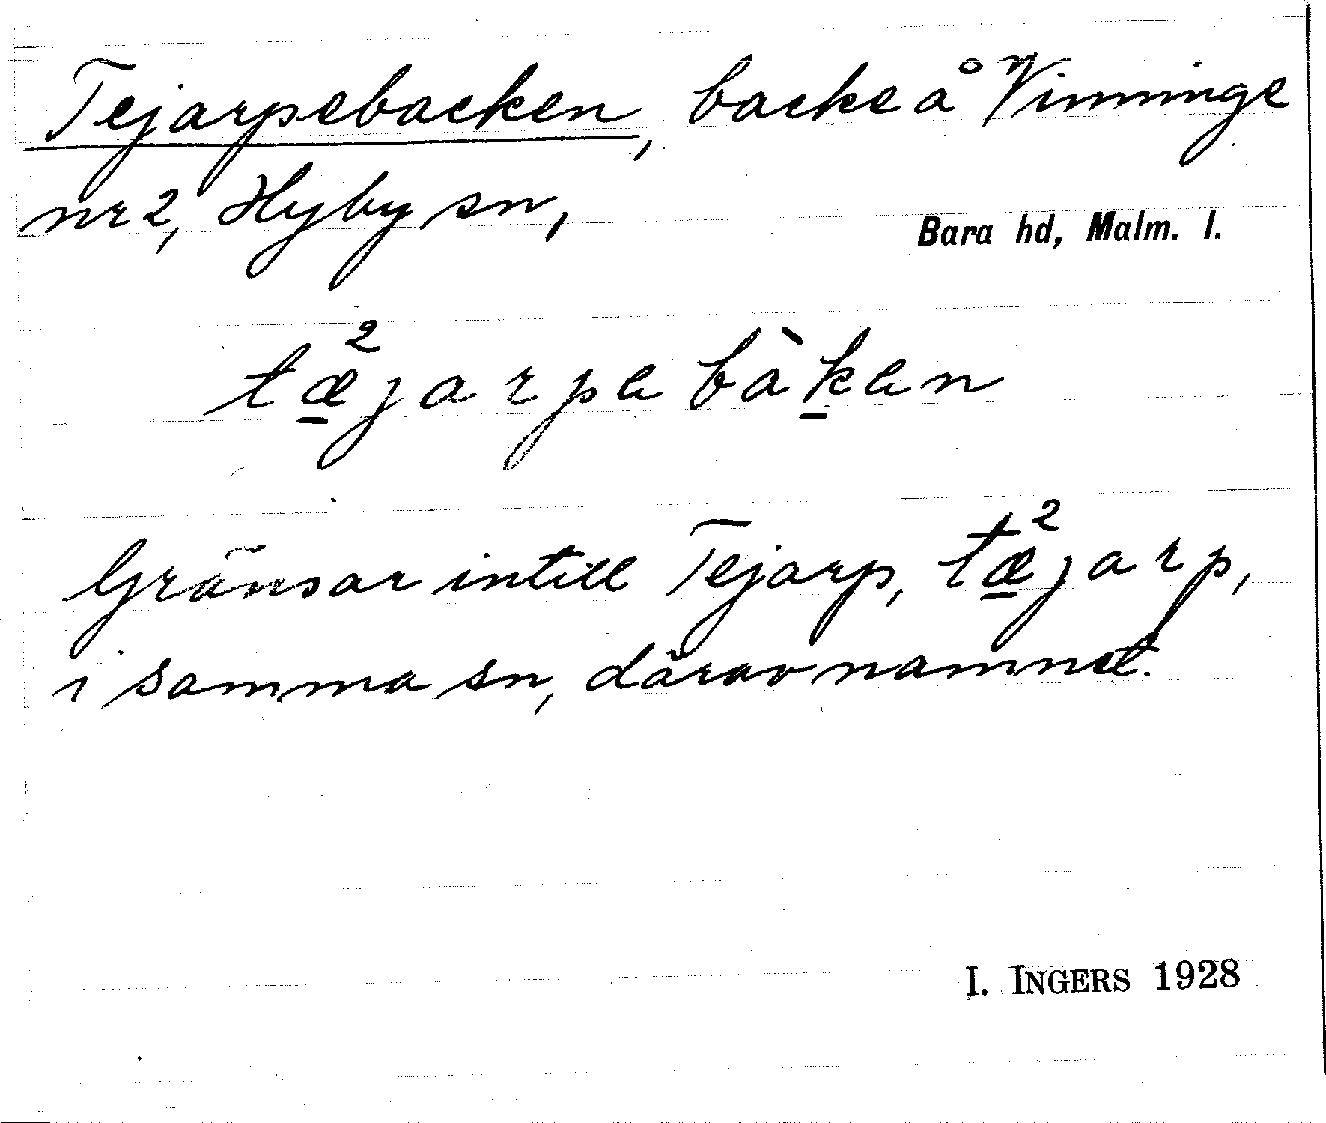 Tejarpebacken, backe å Vinninge
nr 2, Hyby sn,
Bara hd, Malm. l.
tæ̱²jarpebàḵen
Gränsar intill Tejarp, tæ̱²jarp,
i samma sn, därav namnet.
I. INGERS 1928